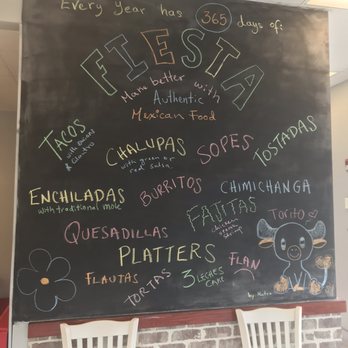 Every Year has 365 days of:
FIESTA
Made better with
Authentic
Mexican Food
TACOS
with onions &
cilantro
CHALUPAS
with green or
red salsa
SOPES
TOSTADAS
ENCHILADAS
with traditional mole
BURRITOS
CHIMICHANGA
FAJITAS
chicken
steak
shrimp
Torito
QUESADILLAS
PLATTERS
FLAUTAS
TORTAS
3 LECHES
CAKE
FLAN
by: